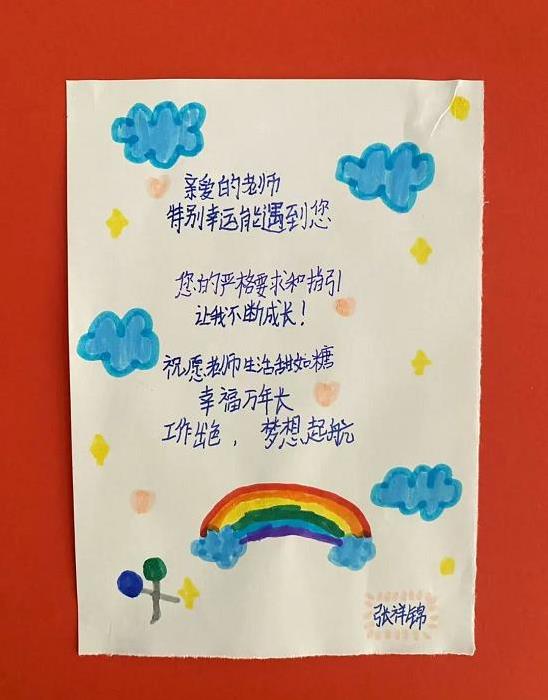 亲爱的老师
特别幸运能遇到您
您的严格要求和指引
让我不断成长！
祝愿老师生活甜如糖
幸福万年长
工作出色，梦想起航
张祥锦